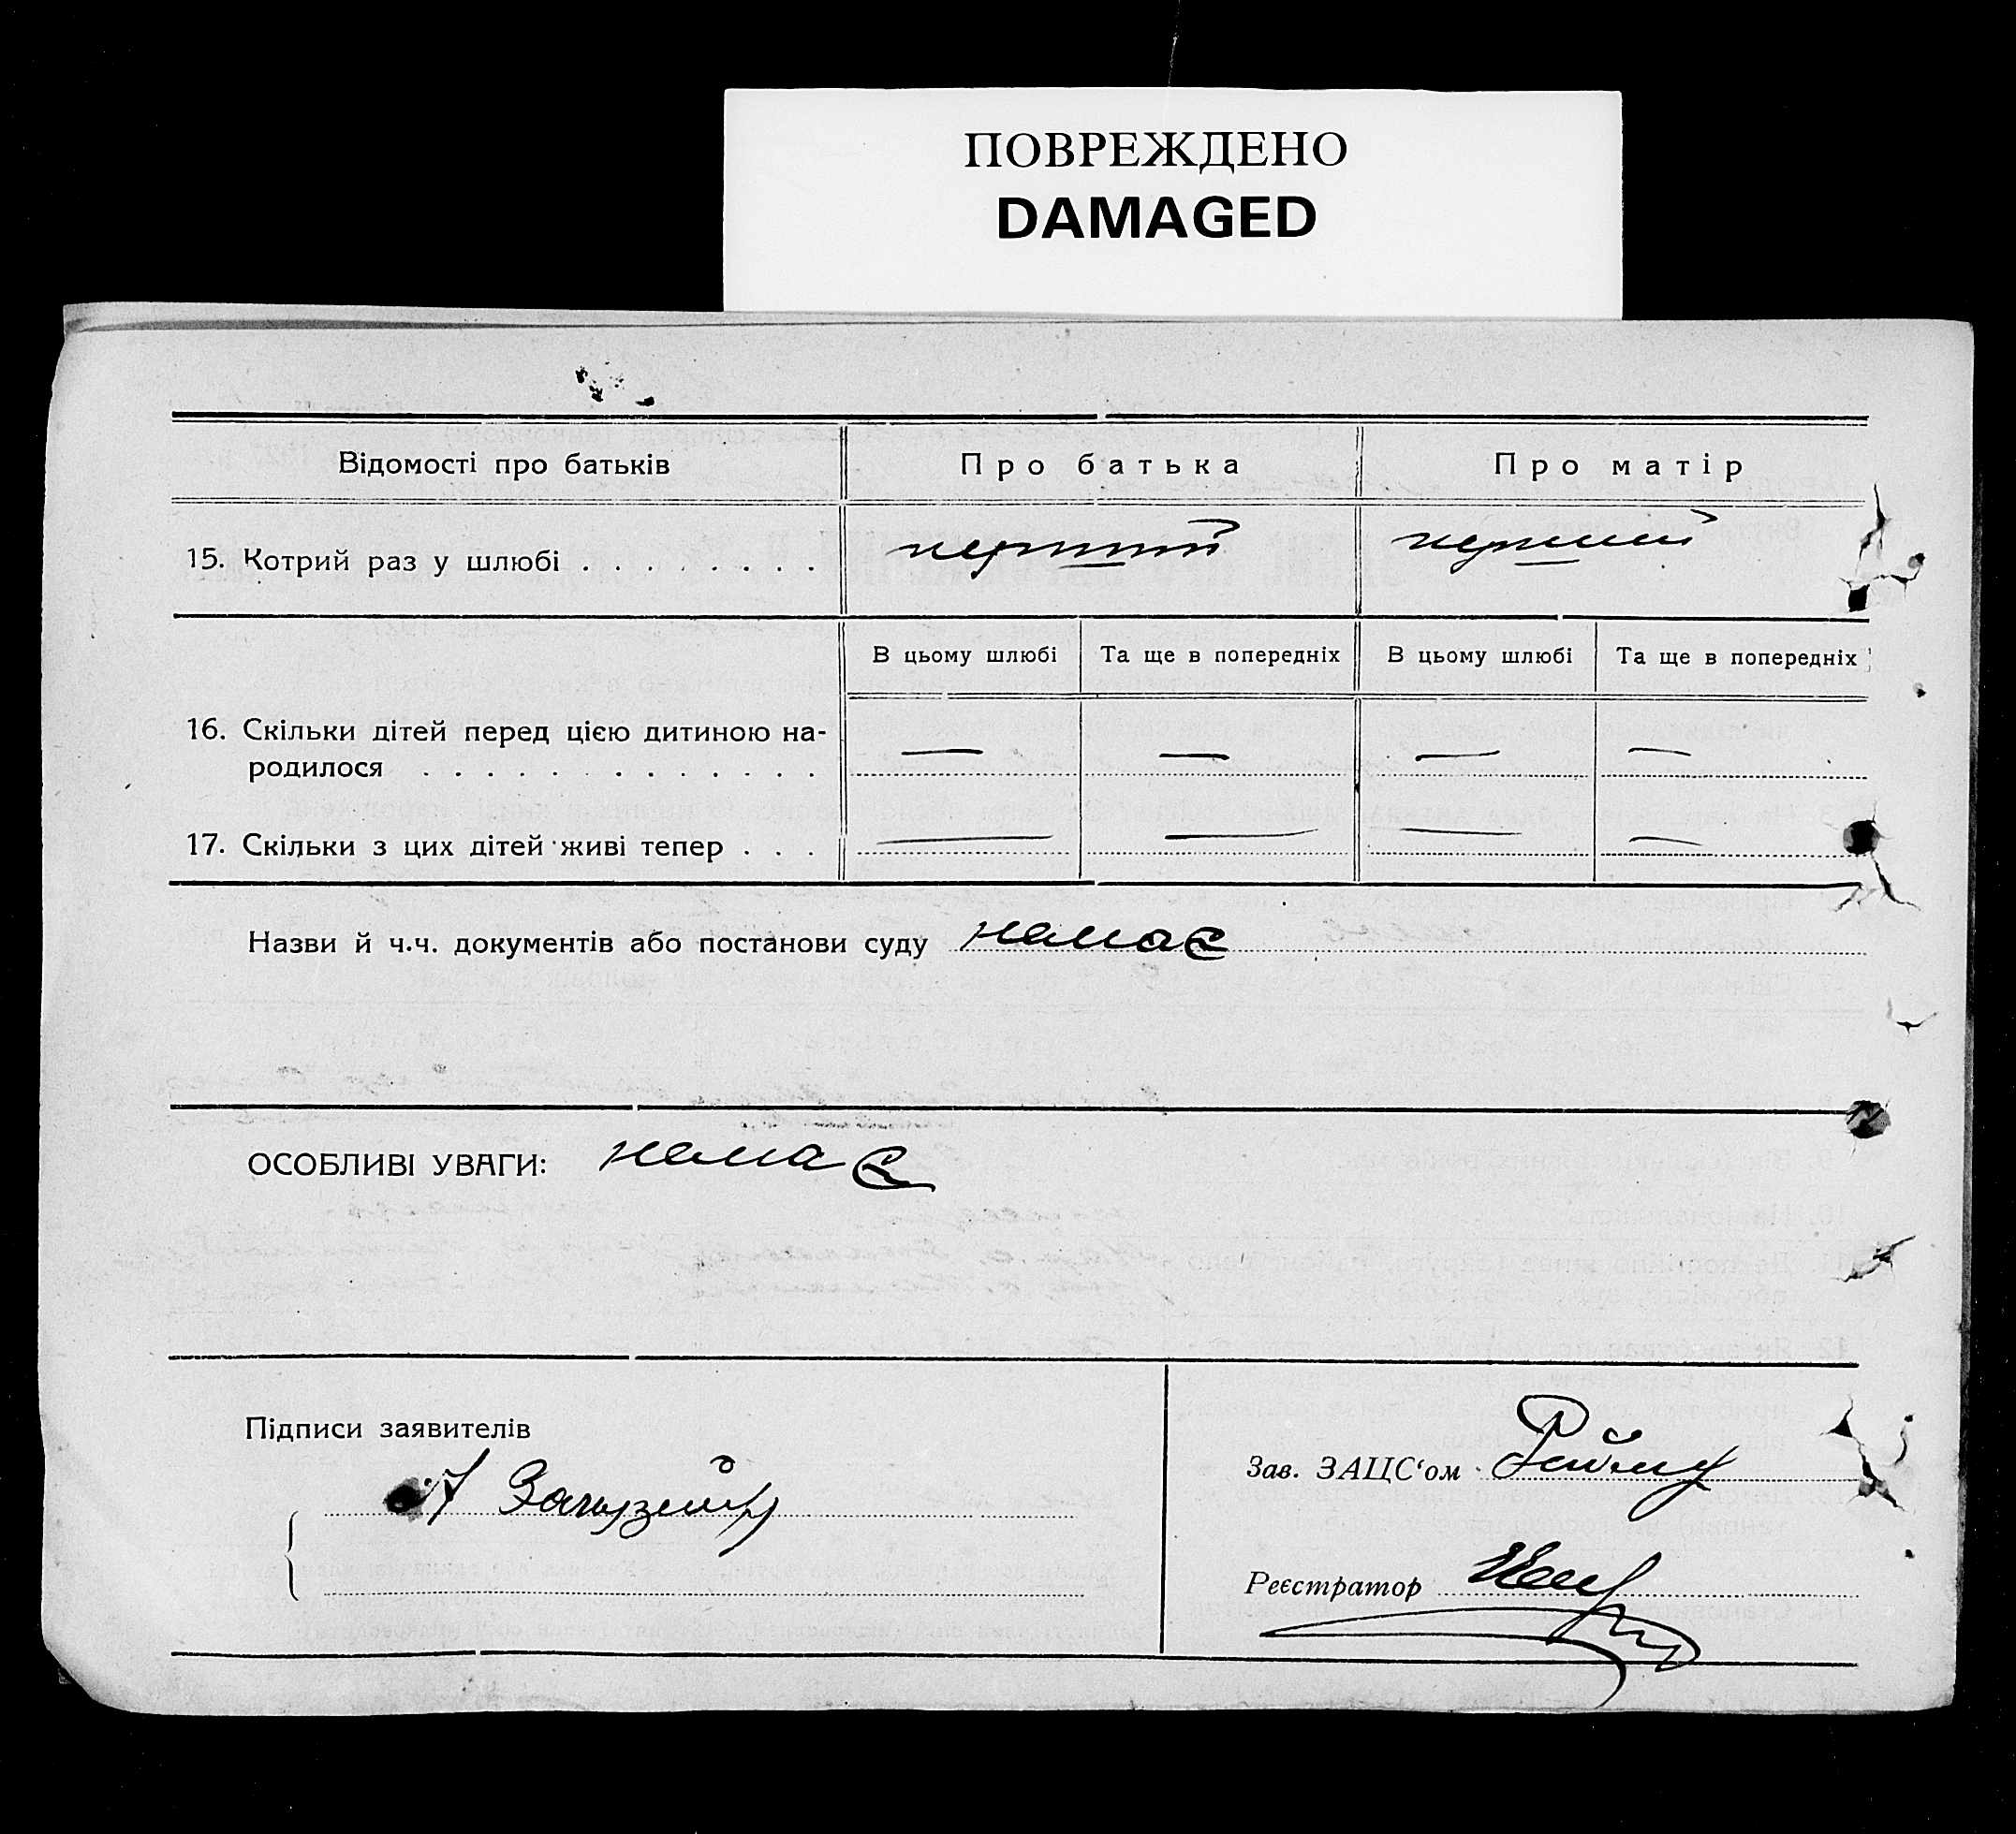 ПОВРЕЖДЕНО
DAMAGED
Відомості про батьків Про батька Про матір
15. Котрий раз у шлюбі . . . . . . . . перший перший
В цьому шлюбі Та ще в попередніх В цьому шлюбі Та ще в попередніх
16. Скільки дітей перед цією дитиною на-
родилося . . . . . . . . . . . . . — — — —
17. Скільки з цих дітей живі тепер . . . — — — —
Назви й ч.ч. документів або постанови суду немає
ОСОБЛИВІ УВАГИ: немає
Підписи заявителів
Зав. ЗАЦС‘ом
Реєстратор